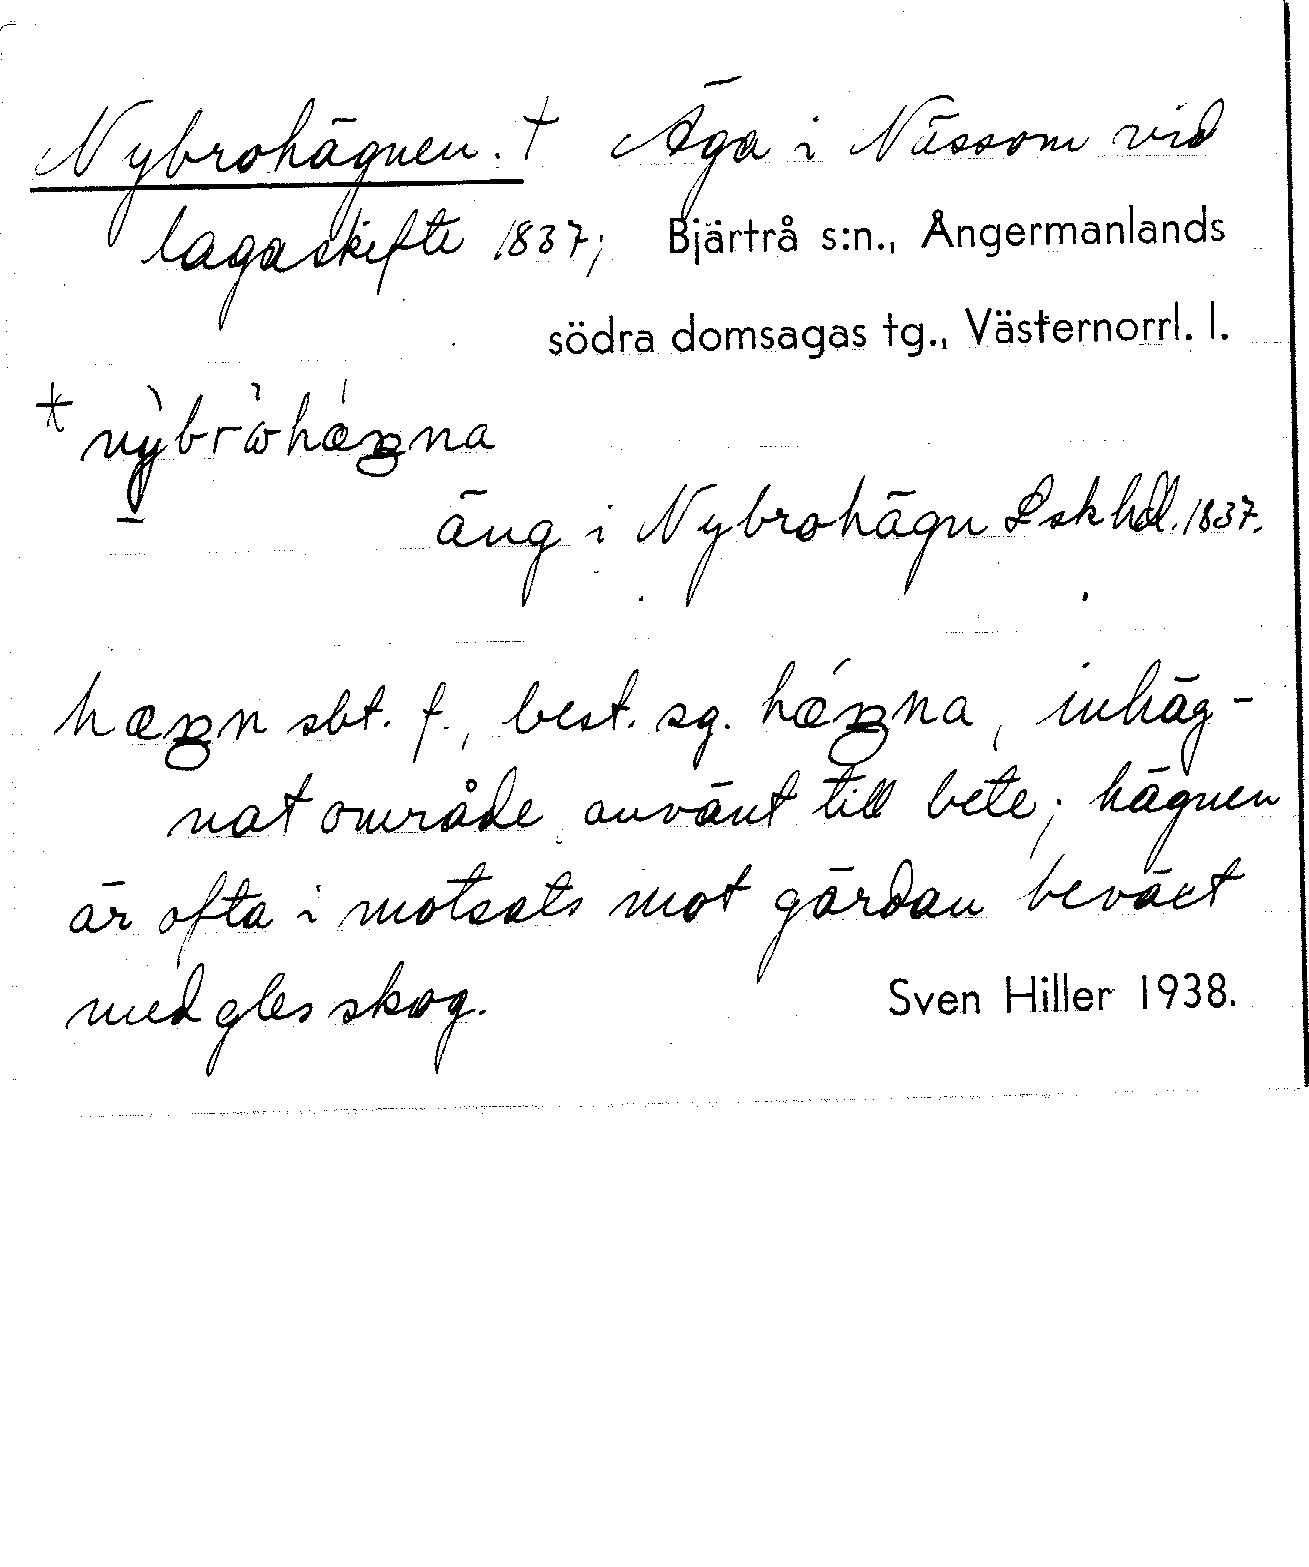 Nybrohägnen. † Äga i Nässom vid
lagaskifte 1837; Bjärtrå s:n., Ångermanlands
södra domsagas tg., Västernorrl. l.
äng i Nybrohägn Lskhdl. 1837.
sbt. f., best. sg. inhäg-
nat område använt till bete; hägnen
är ofta i motsats mot gärdan beväxt
med gles skog. Sven Hiller 1938.